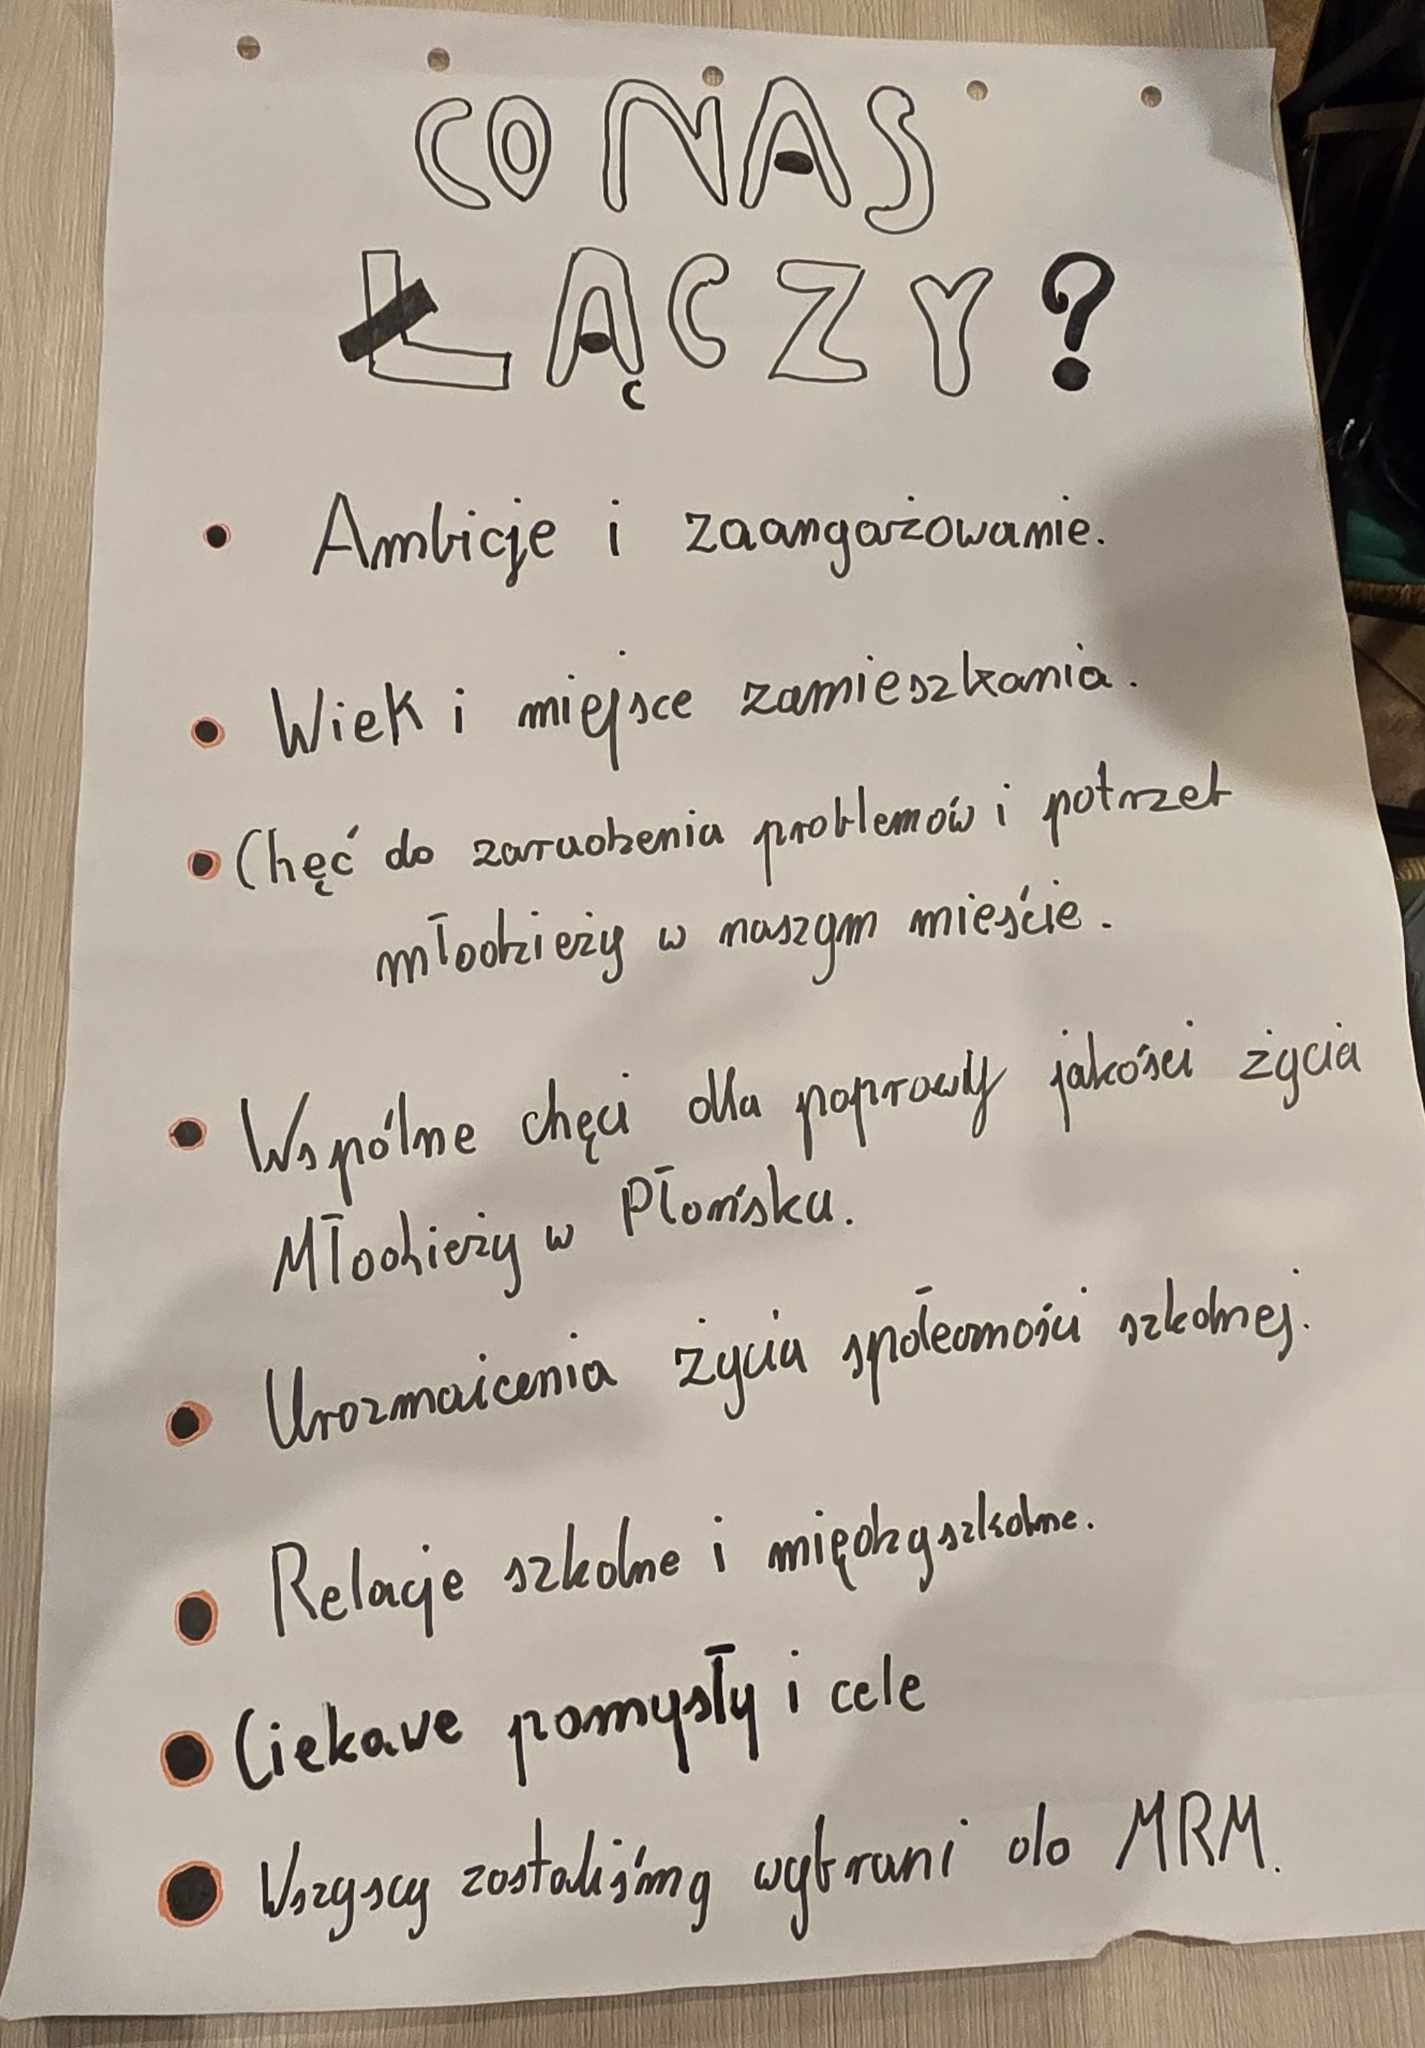 CO NAS
ŁĄCZY?
• Ambicje i zaangażowanie.
• Wiek i miejsce zamieszkania.
• Chęć do zarudzenia problemów i potrzeb
młodzieży w naszym mieście.
• Wspólne chęci dla poprawy jakości życia
Młodzieży w Płońsku.
• Urozmaicenia życia społeczności szkolnej.
• Relacje szkolne i międzyszkolne.
• Ciekawe pomysły i cele
• Wszyscy zostaliśmy wybrani do MRM.